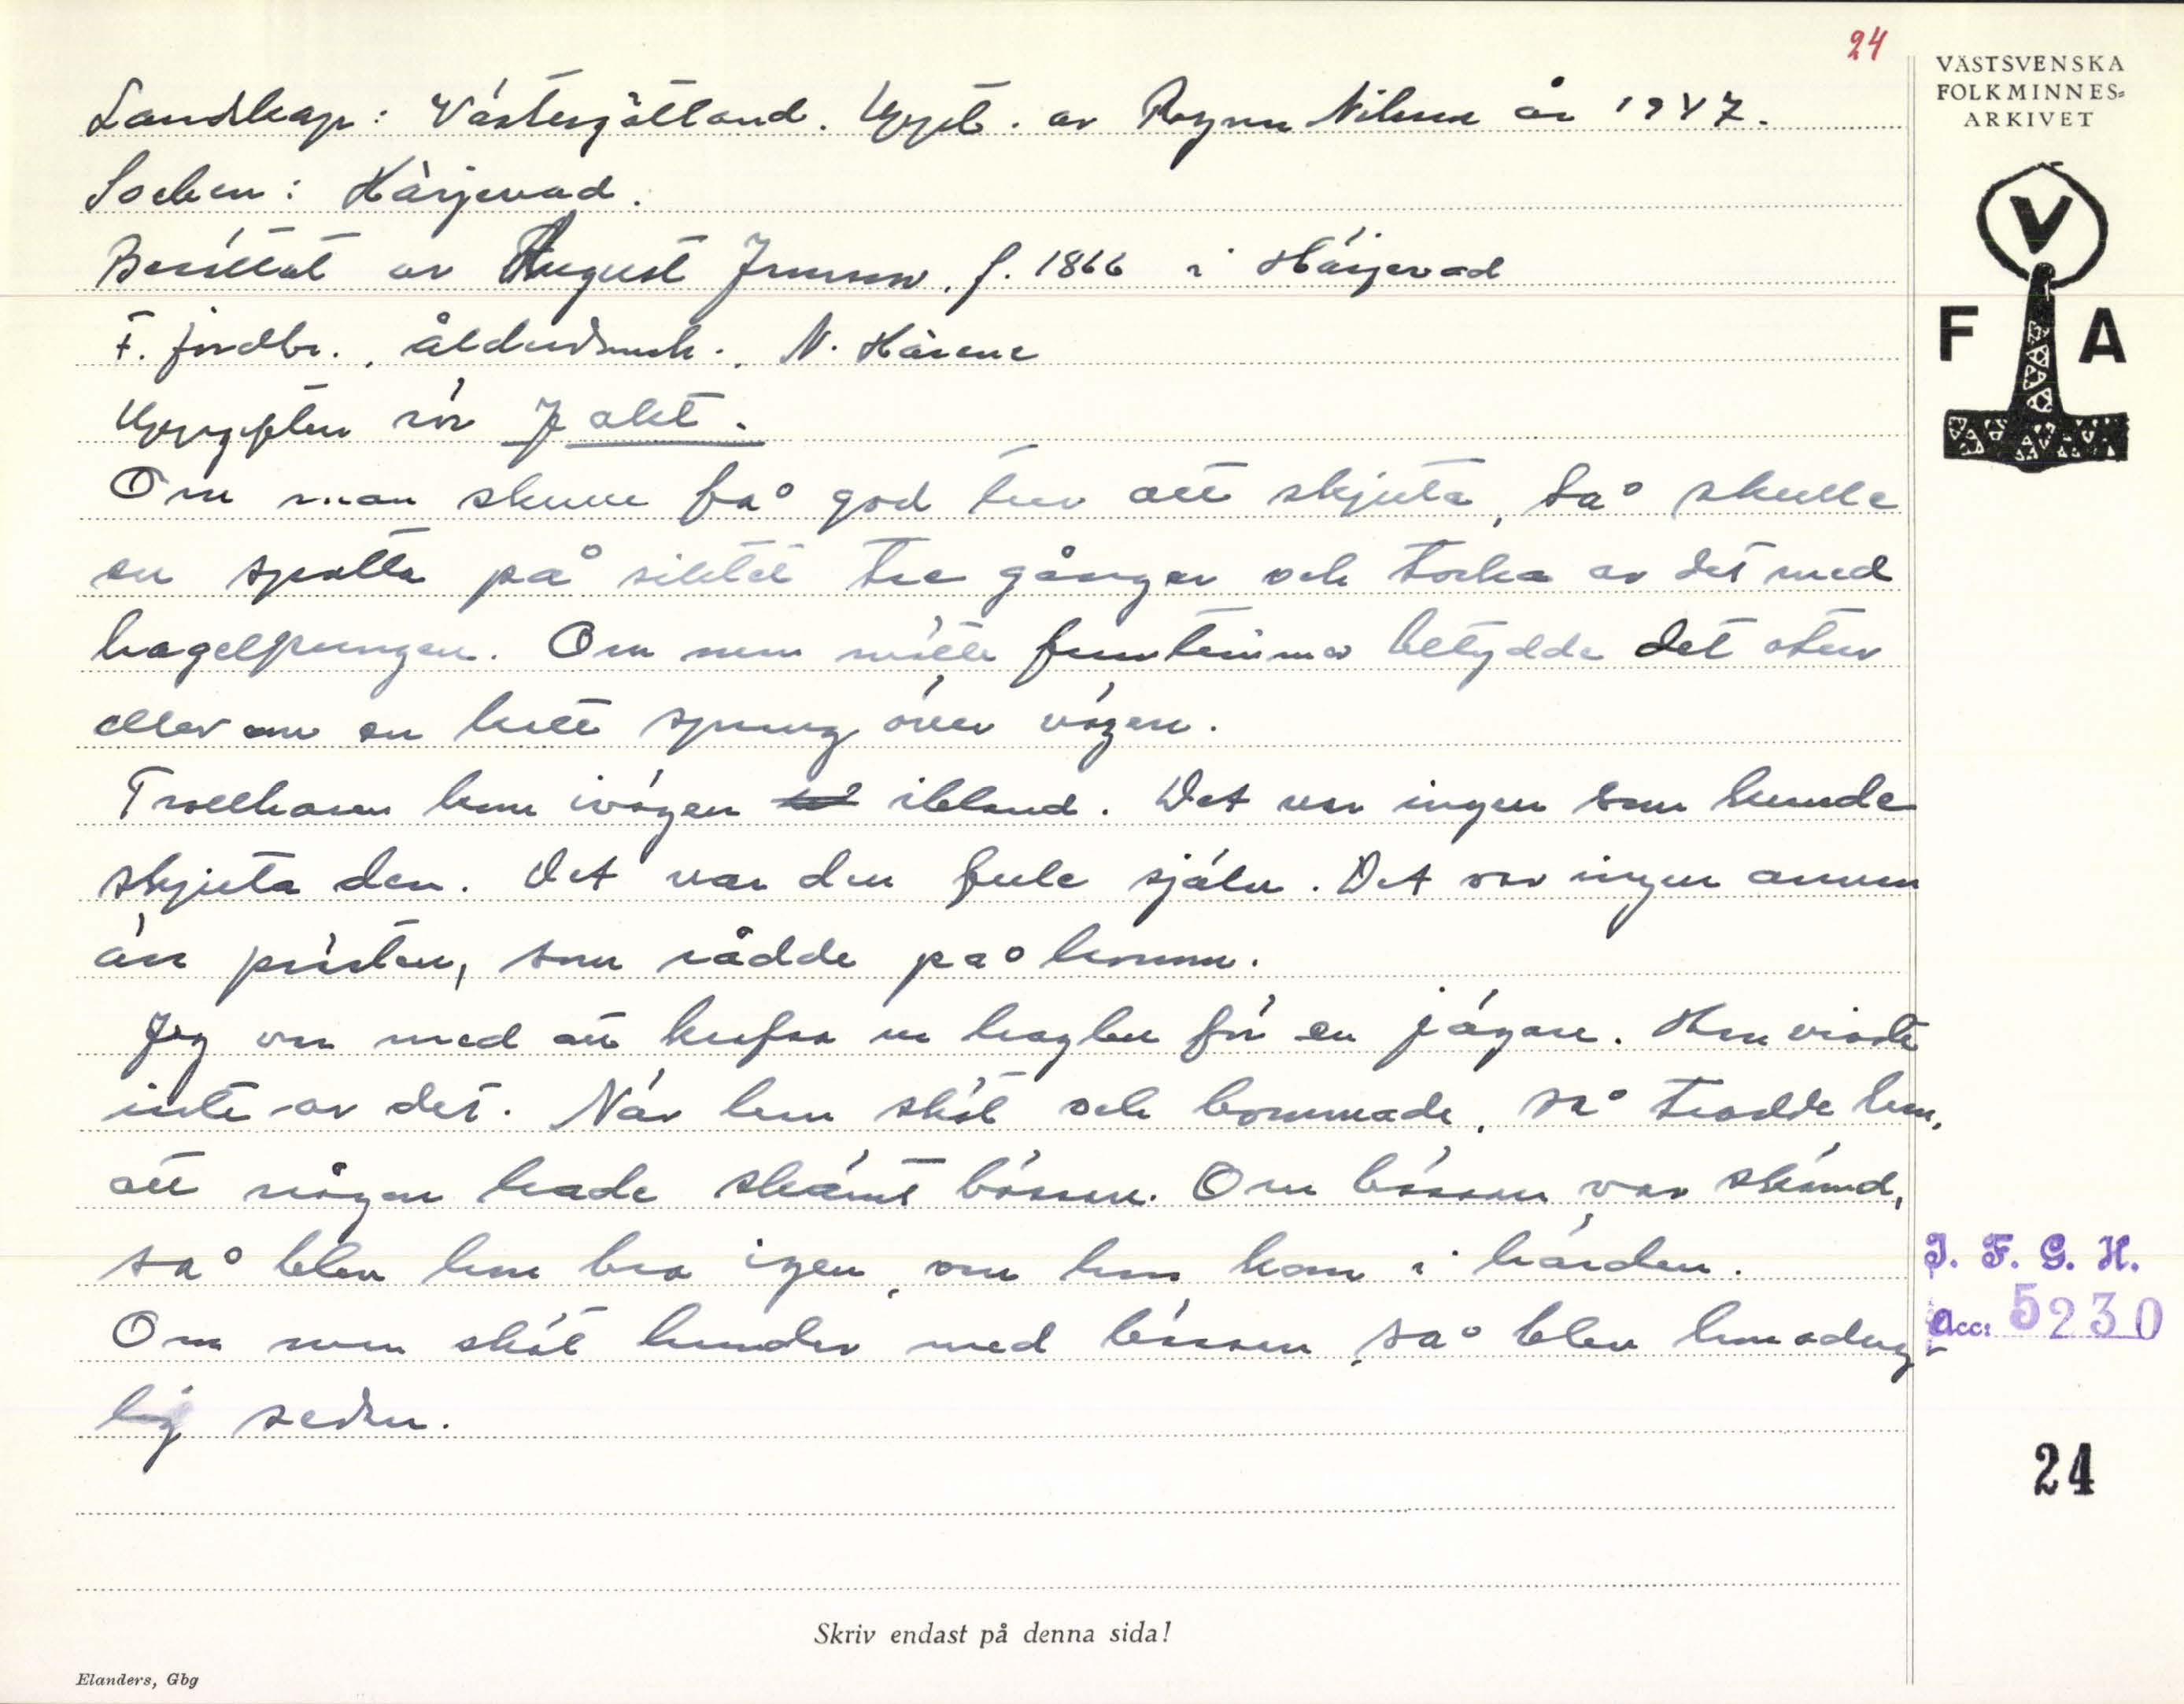 24
VÄSTSVENSKA
FOLKMINNES-
ARKIVET
V
F A
Landskap: Västergötland. Uppt. av Ragnar Nilsson år 1947.
Socken: Härjevad.
Berättat av August Jonsson, f. 1866 i Härjevad
F. jordbr., ålderdomsh., N. Härene
Uppgiften rör Jakt.
Om man skulle få god tur att skjuta, så skulle
en spotta på siktet tre gånger och torka av det med
hagelpungen. Om man mötte fruntimmer betydde det otur
eller om en katt sprang över vägen.
Trollharen kom ivägen ibland. Det var ingen som kunde
skjuta den. Det var den fule själv. Det var ingen annan
än prästen, som rådde på honom.
Jag var med att knipsa ur haglen för en jägare. Han visste
inte av det. När han sköt och bommade, så trodde han,
att någon hade skämt bössan. Om bössan var skämd,
så blev hon bra igen, om hon kom i härden.
Om man sköt hundar med bössan, så blev hon odug-
lig sedan.
I. F. G. H.
Acc: 5230
24
Skriv endast på denna sida!
Elanders, Gbg